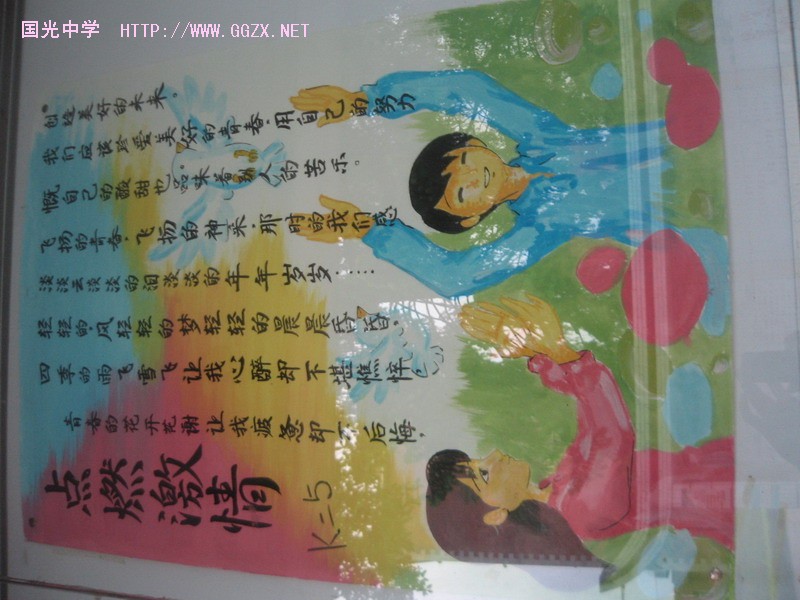 国光中学 HTTP://WWW.GGZX.NET
点燃激情
K二5
青春的花开花谢让我疲惫却不后悔,
四季的雨飞雪飞让我心醉却不堪憔悴
轻轻的风轻轻的梦轻轻的晨晨昏昏。
淡淡云淡淡的泪淡淡的年年岁岁……
飞扬的青春,飞扬的神采,那时的我们感
慨自己的酸甜也品味着别人的苦乐。
我们应该珍爱美好的青春,用自己的努力
创造美好的未来。